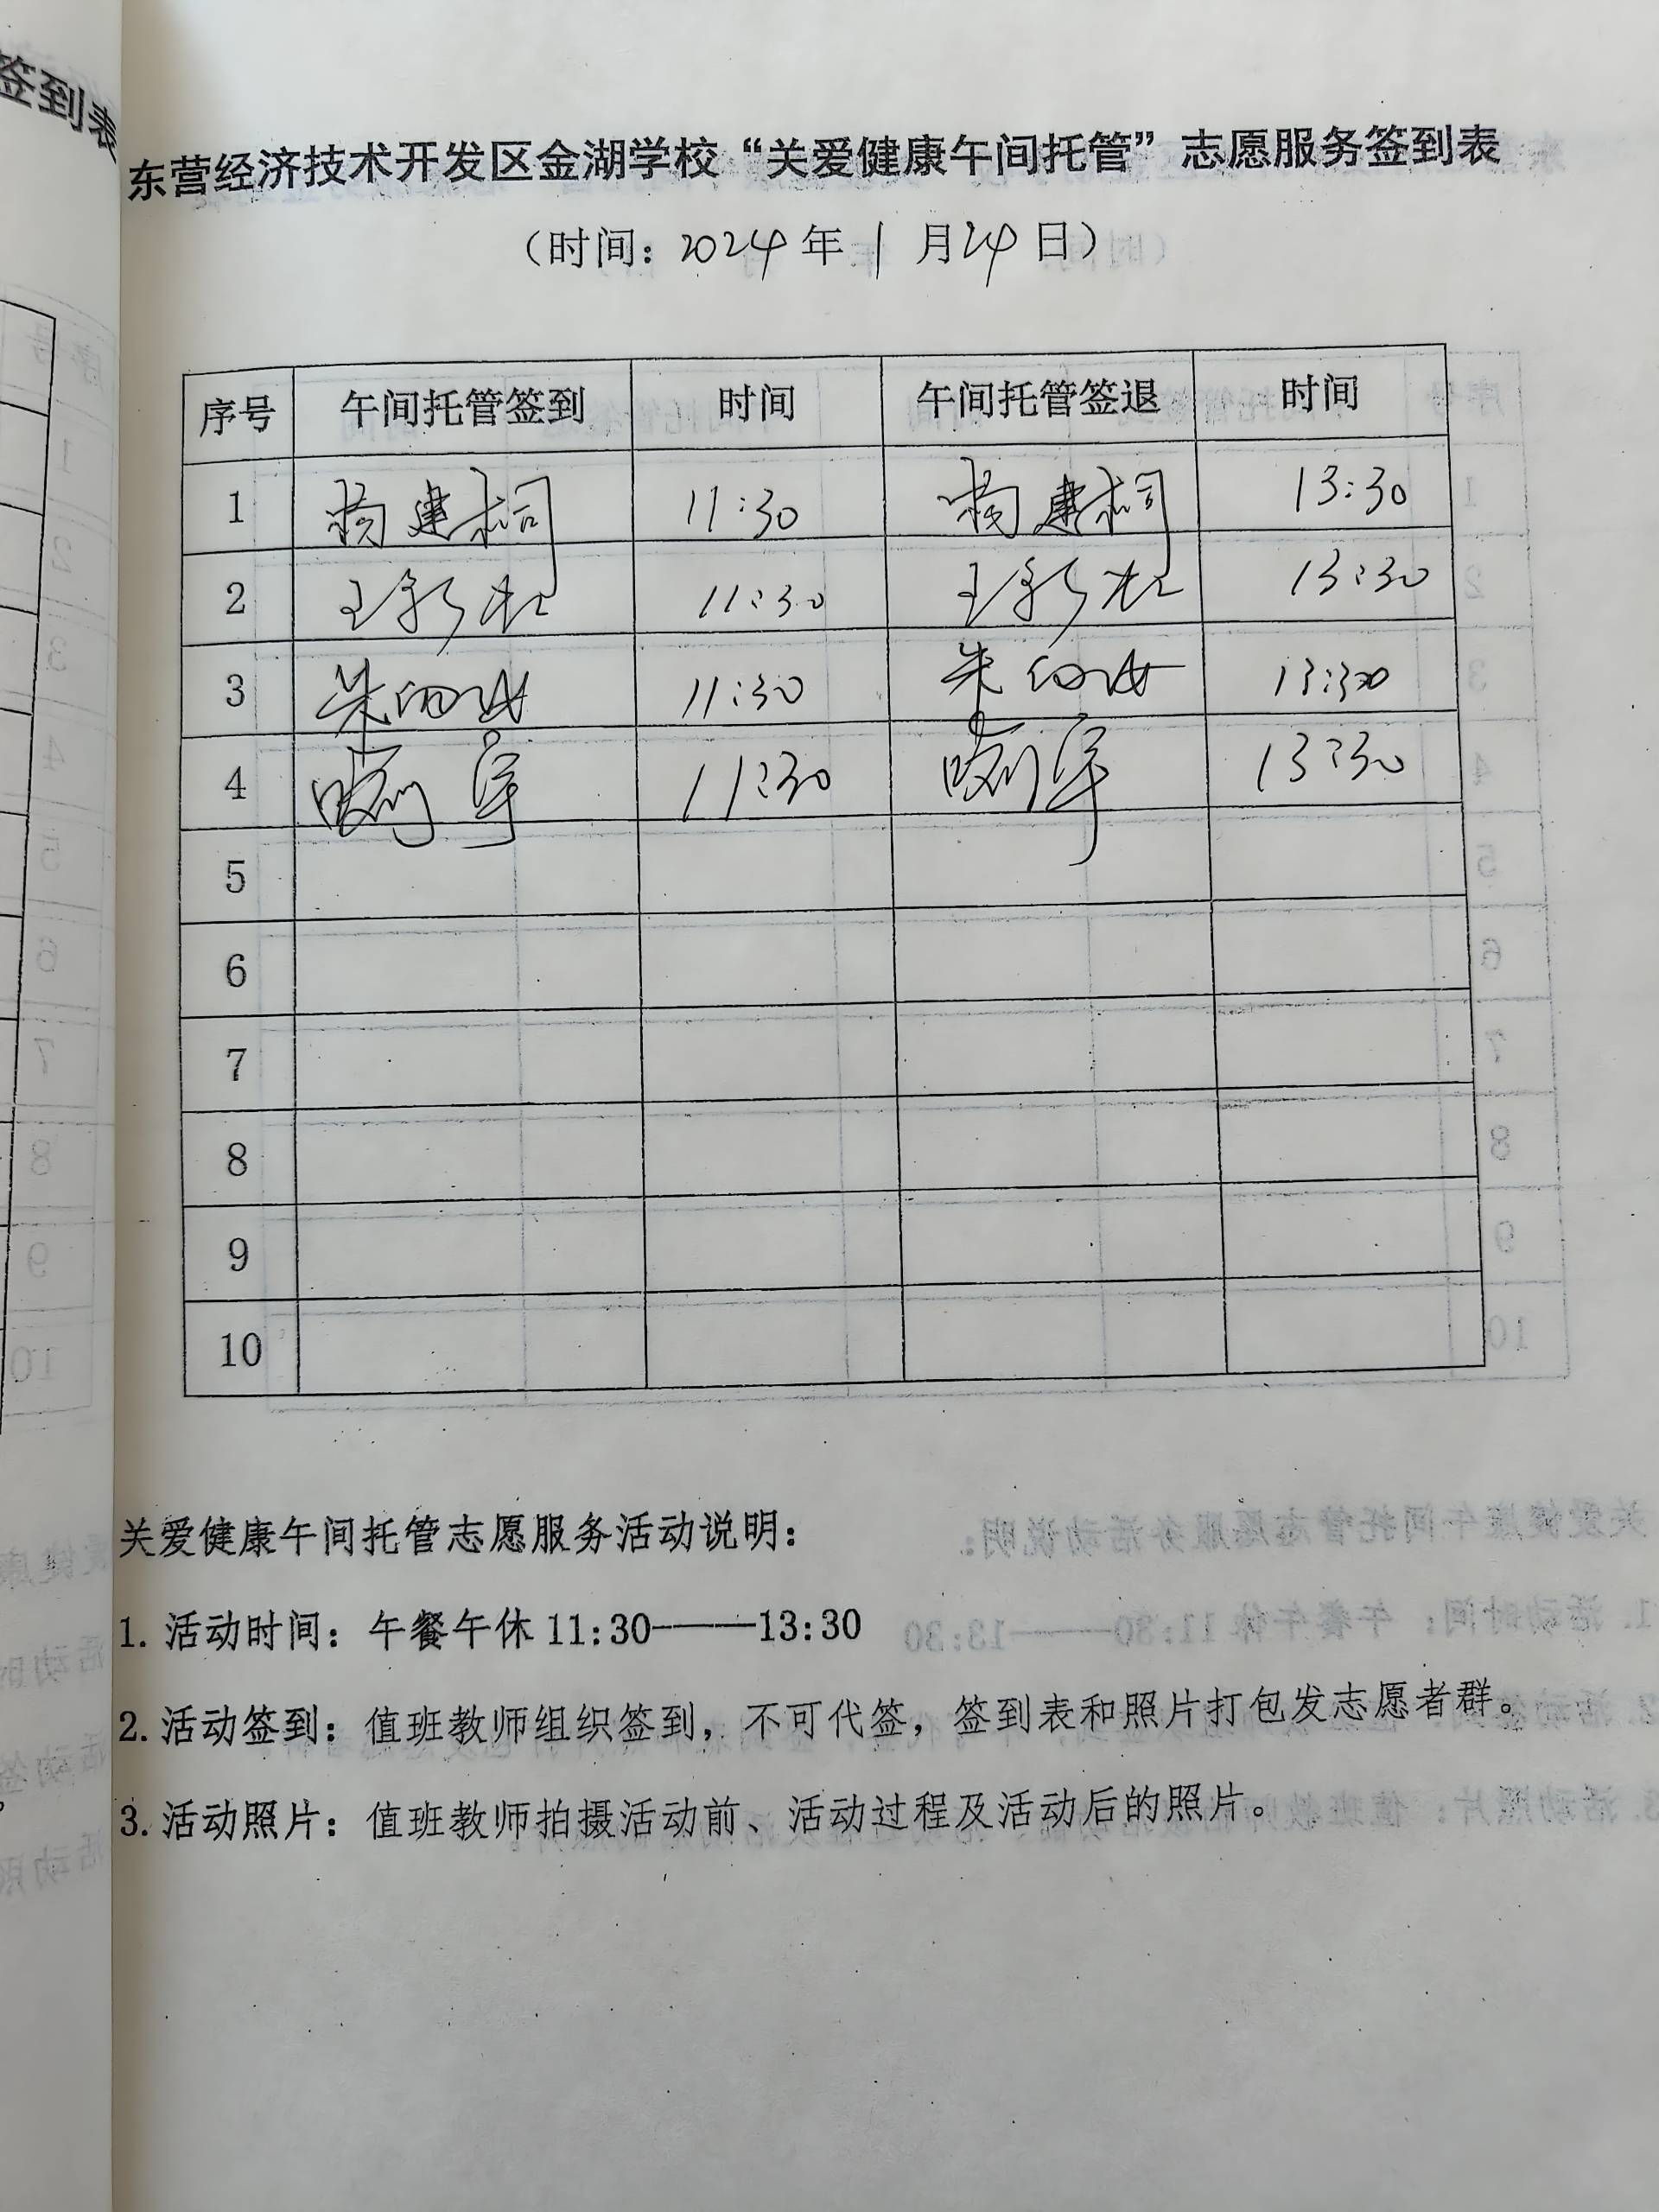 签到表
东营经济技术开发区金湖学校“关爱健康午间托管”志愿服务签到表
（时间：2024年1月24日）
序号 午间托管签到 时间 午间托管签退 时间
1 杨建桐 11:30 杨建桐 13:30
2 王 11:30 王 13:30
3 朱 11:30 朱 13:30
4 11:30 13:30
5
6
7
8
9
10
关爱健康午间托管志愿服务活动说明：
1. 活动时间：午餐午休 11:30———13:30
2. 活动签到：值班教师组织签到，不可代签，签到表和照片打包发志愿者群。
3. 活动照片：值班教师拍摄活动前、活动过程及活动后的照片。